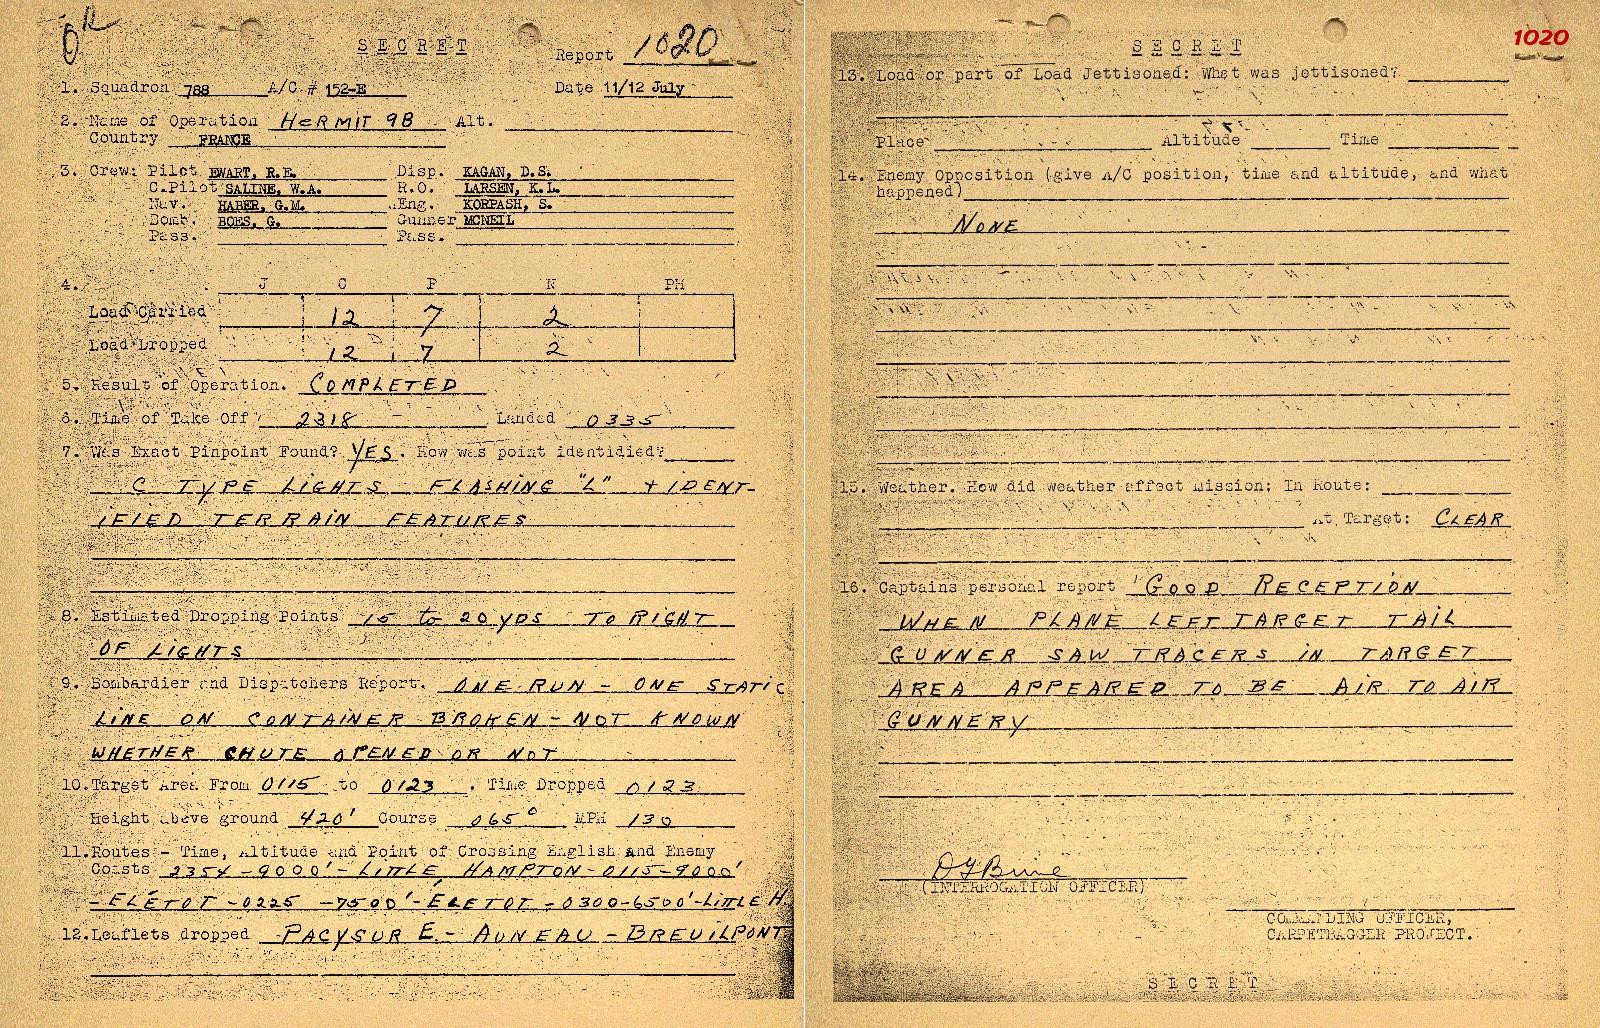 OK
SECRET
Report 1020
1. Squadron 788 A/C # 152-E Date 11/12 July
2. Name of Operation HERMIT 9B Alt.
Country FRANCE
3. Crew: Pilot EWART, R.E. Disp. KAGAN, D.S.
C.Pilot SALINE, W.A. R.O. LARSEN, K.L.
Nav. HABER, G.M. Eng. KORPASH, S.
Bomb. BOES, G. Gunner MCNEIL
Pass. Pass.
4. J C P N PH
Load Carried 12 7 2
Load Dropped 12 7 2
5. Result of Operation. COMPLETED
6. Time of Take Off 2318 Landed 0335
7. Was Exact Pinpoint Found? YES. How was point identidied?
C TYPE LIGHTS FLASHING "L" + IDENT-
IFIED TERRAIN FEATURES
8. Estimated Dropping Points 15 to 20 yDS TO RIGHT
OF LIGHTS
9. Bombardier and Dispatchers Report. ONE RUN - ONE STATIC
LINE ON CONTAINER BROKEN - NOT KNOWN
WHETHER CHUTE OPENED OR NOT
10. Target Area From 0115 to 0123. Time Dropped 0123
Height above ground 420' Course 065° MPH 130
11. Routes - Time, Altitude and Point of Crossing English and Enemy
Coasts 2354 - 9000' - LITTLE HAMPTON - 0115 - 9000'
- ELÉTOT - 0225 - 7500' - ÉLETOT - 0300 - 6500' - LITTLE H.
12. Leaflets dropped PACYSUR E. - AUNEAU - BREUILPONT
1020
SECRET
13. Load or part of Load Jettisoned: What was jettisoned?
Place Altitude Time
14. Enemy Opposition (give A/C position, time and altitude, and what
happened)
NONE
15. Weather. How did weather affect Mission: In Route:
At Target: CLEAR
16. Captains personal report 'GOOD RECEPTION
WHEN PLANE LEFT TARGET TAIL
GUNNER SAW TRACERS IN TARGET
AREA APPEARED TO BE AIR TO AIR
GUNNERY
(INTERROGATION OFFICER)
COMMANDING OFFICER,
CARPETBAGGER PROJECT.
SECRET